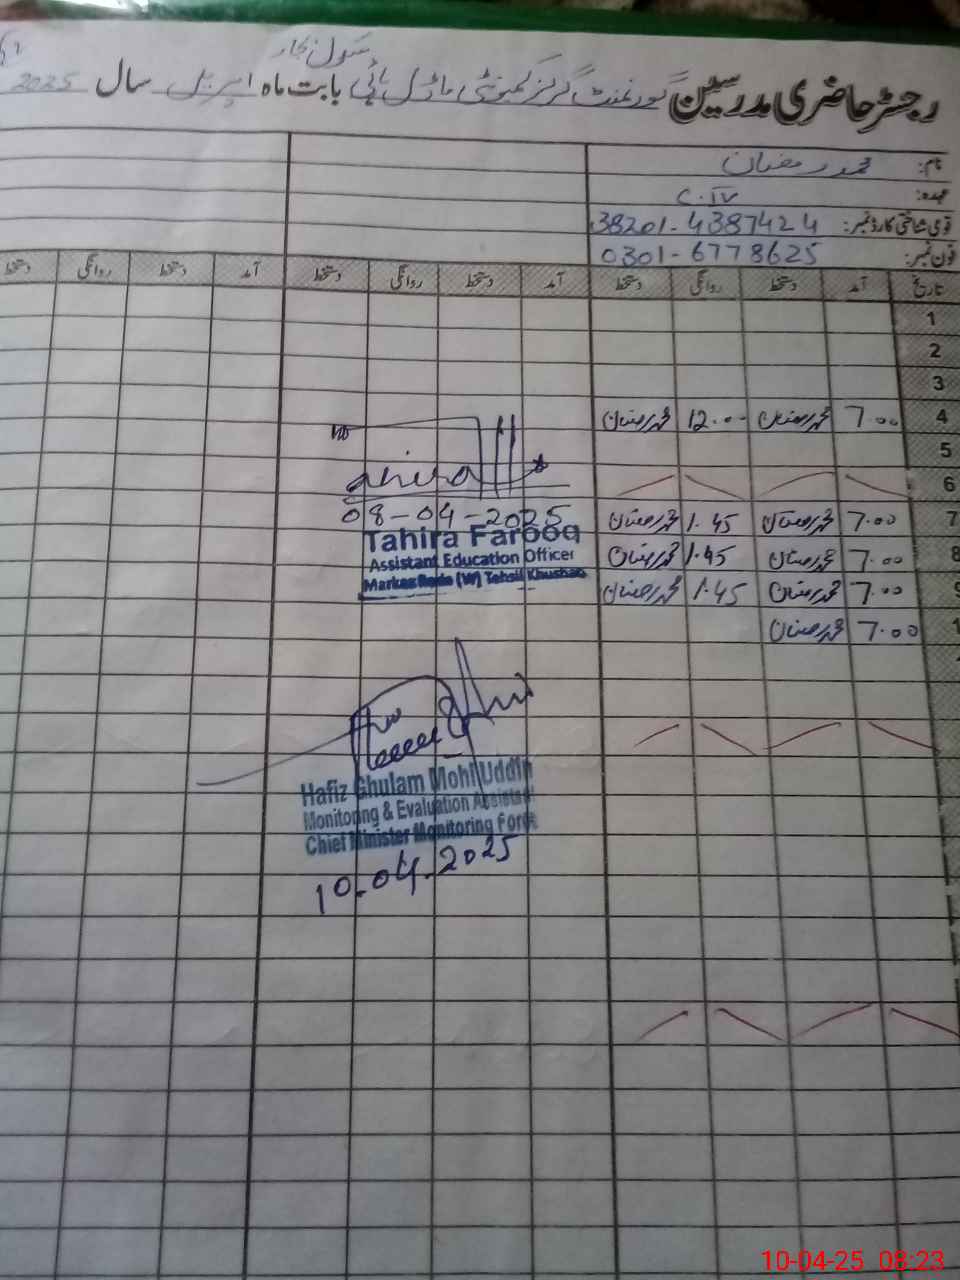 سکول نکار
رجسٹر حاضری مدرسین گورنمنٹ گرلز کمیونٹی ماڈل ہائی بابت ماہ اپریل سال 2025
نام: محمد رمضان
عہدہ: C.IV
قومی شناختی کارڈ نمبر: 38201-4387424
فون نمبر: 0301-6778625
تاریخ آمد دستخط روانگی دستخط آمد دستخط روانگی دستخط آمد دستخط روانگی دستخط
1
2
3
4 7.00 محمد رمضان 12.00 محمد رمضان
5
6
7 7.00 محمد رمضان 1.45 محمد رمضان
8 7.00 محمد رمضان 1.45 محمد رمضان
9 7.00 محمد رمضان 1.45 محمد رمضان
1 7.00 محمد رمضان
08-04-2025
Tahira Farooq
Assistant Education Officer
Markaz Roda (W) Tehsil Khushab
Hafiz Ghulam Mohi Uddin
Monitoring & Evaluation Assistant
Chief Minister Monitoring Force
10.04.2025
10-04-25 08:23